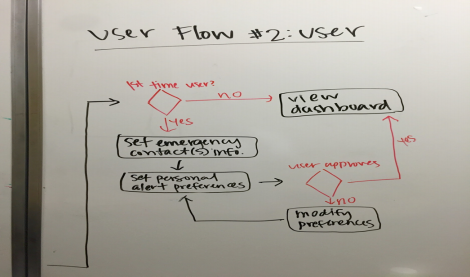 User Flow #2: User
1st time user?
no
view
dashboard
yes
set emergency
contact(s) info.
set personal
alert preferences
user approves
yes
no
modify
preferences